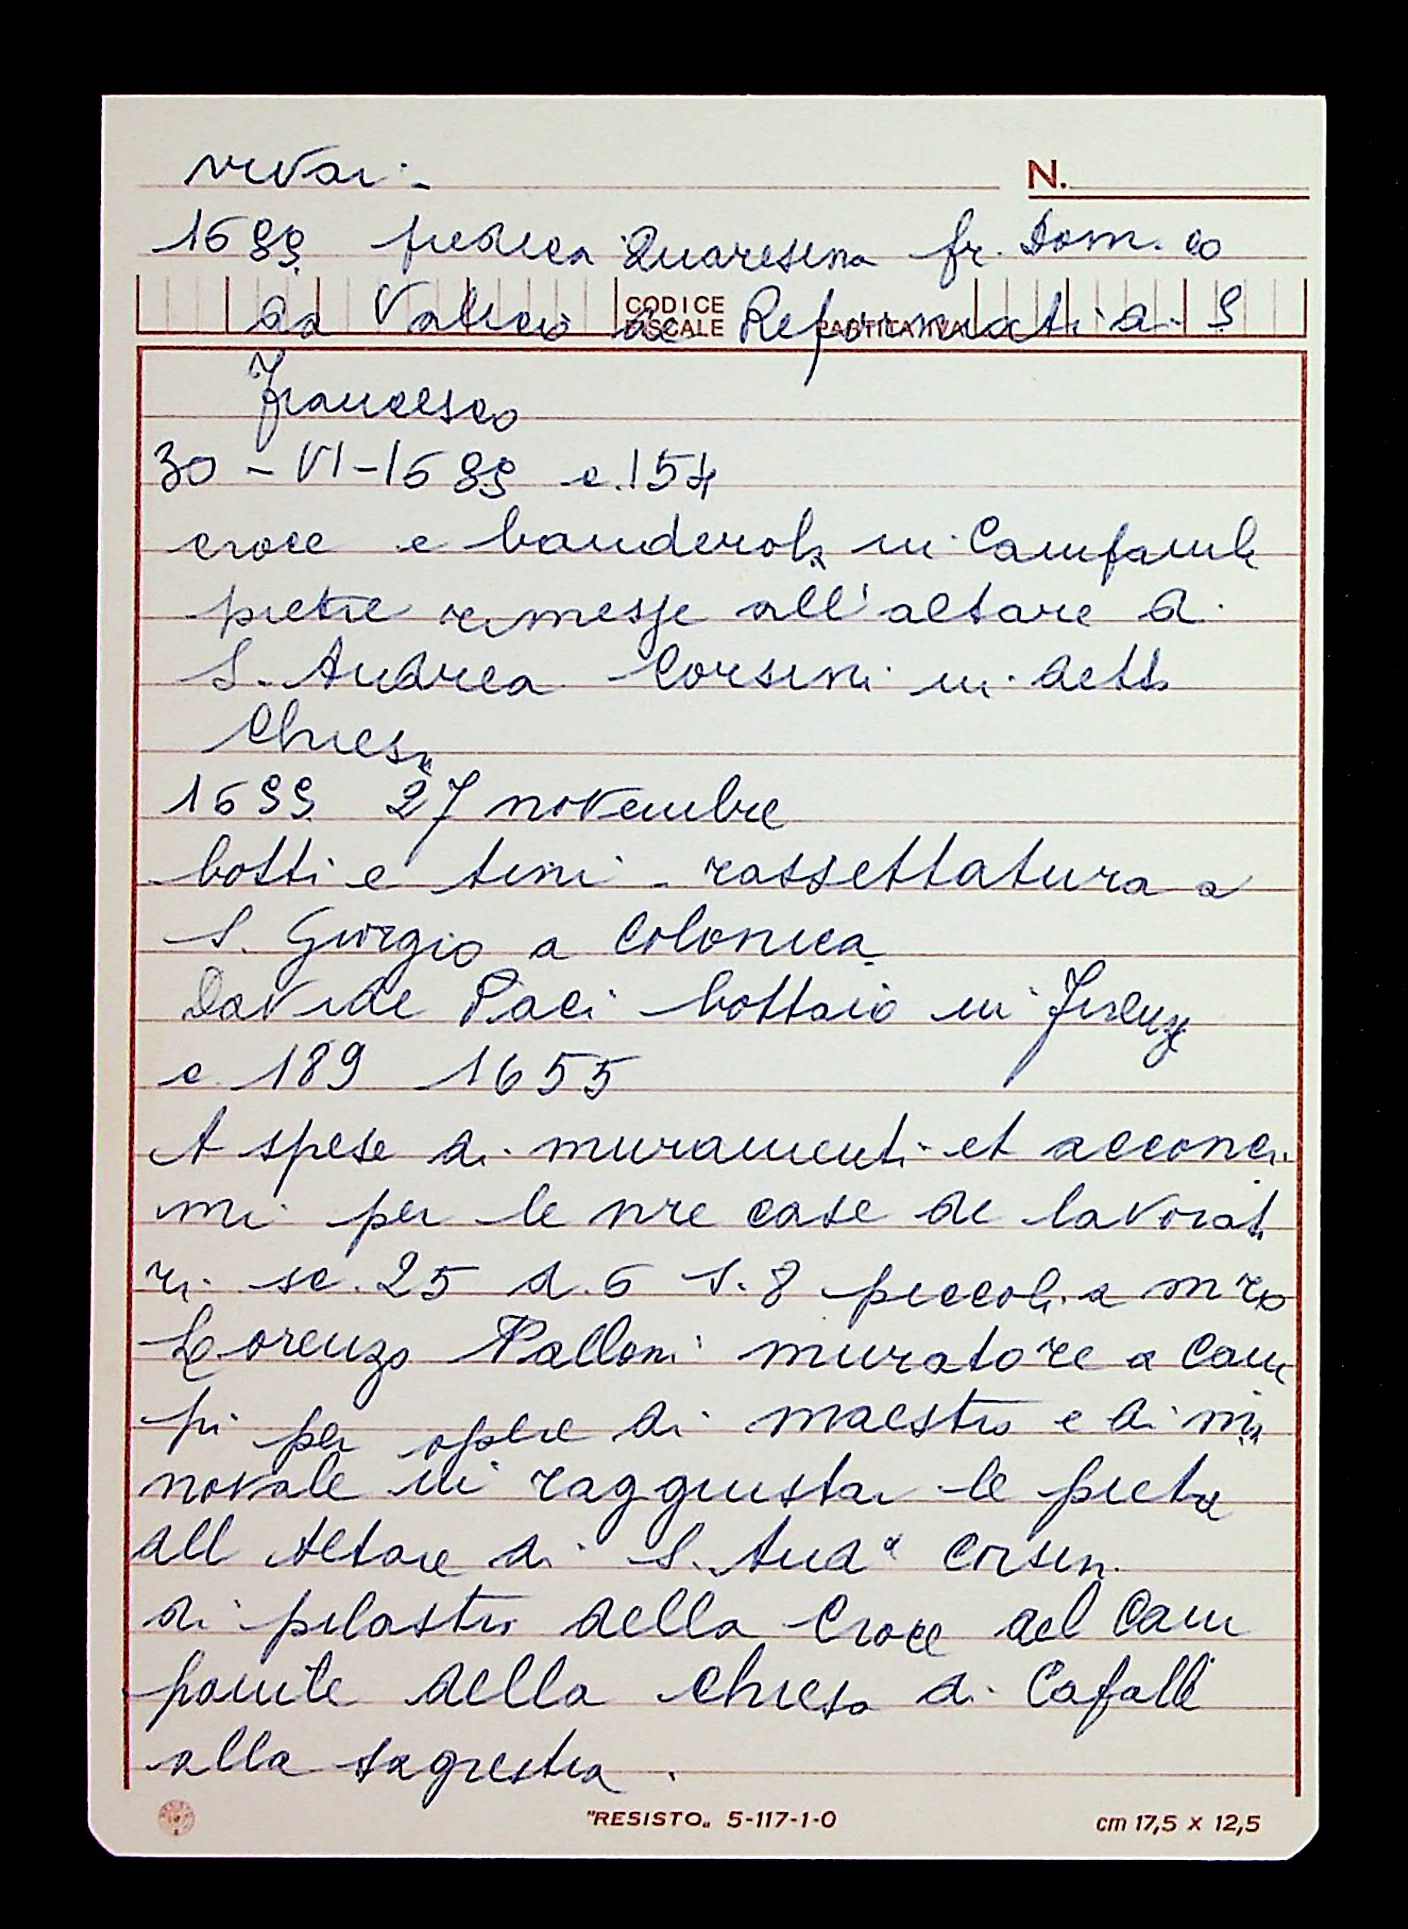 vivai -
N.
1699 predica Quaresima fr. Dom.co
CODICE FISCALE PARTITA IVA
da Vaticio de Reformati di S
Francesco
30 - VI - 1699 c. 154
croce e banderola in Campanile
pietre rimesse all'altare di
S. Andrea Corsini in detta
Chiesa
1699 27 novembre
botti e tini - rassettatura a
S. Giorgio a Colonica
Davide Paci bottaio in Firenze
c 189 1655
A spese di muramenti et acconci
mi per le nre case de lavorat
ri sc. 25 d. 6 s. 8 piccoli a mro
Lorenzo Palloni muratore a Cam
pi per opere di maestro e di ma
novale in raggiustar le pietre
all Altare di S. Anda Corsin
di pilastri della Croce del Cam
panile della chiesa di Cafalli
alla sagrestia.
"RESISTO„ 5-117-1-0 cm 17,5 x 12,5